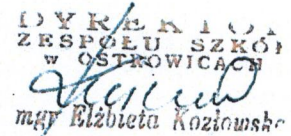 DYREKTOR
ZESPOŁU SZKÓŁ
W OSTROWICACH
mgr Elżbieta Kozłowska